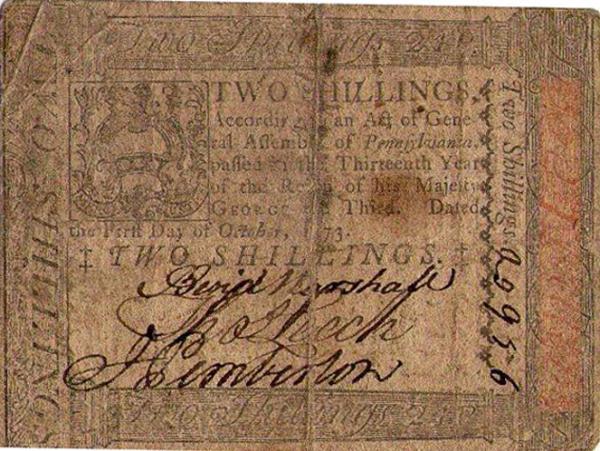 Two Shillings 24d.
TWO SHILLINGS.
According to an Act of Gene-
ral Assembly of Pennsylvania,
passed in the Thirteenth Year
of the Reign of his Majesty
GEORGE the Third. Dated
the First Day of October, 1773.
‡ TWO SHILLINGS. ‡
Benjd Marshall
Tho Leech
J Pemberton
Two Shillings 24d.
TWO SHILLINGS
Two Shillings
20956